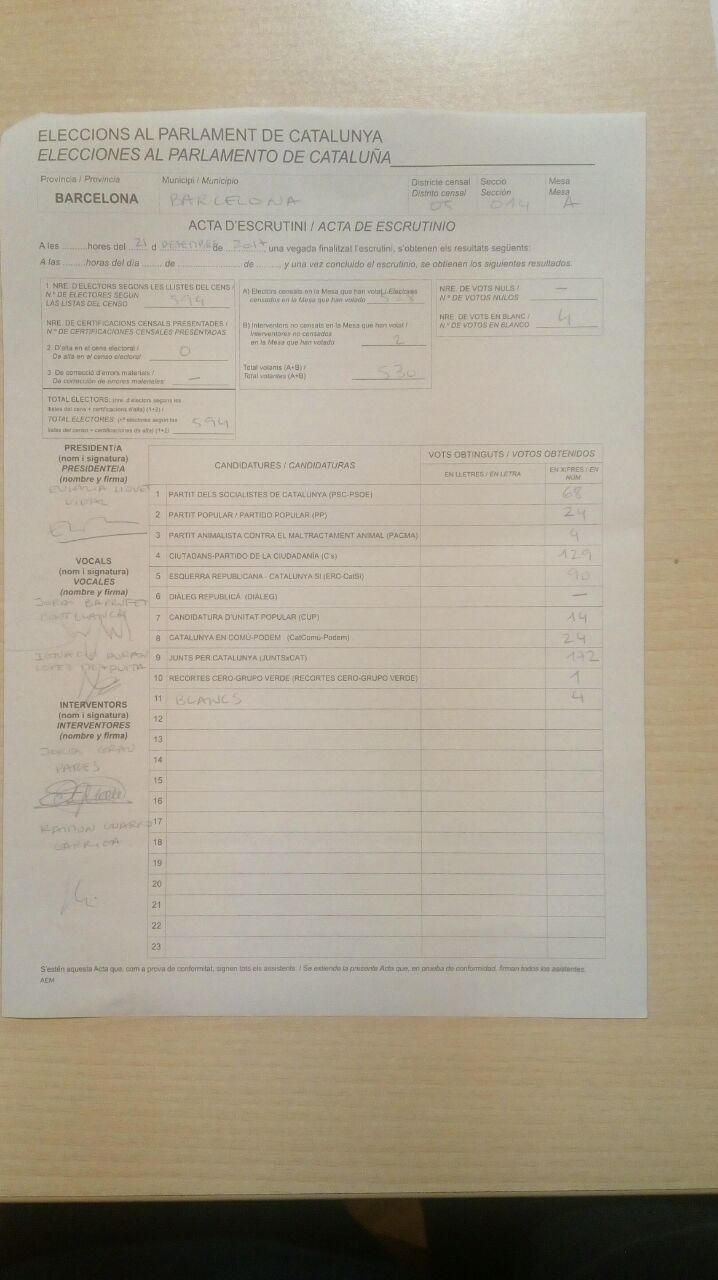 ELECCIONS AL PARLAMENT DE CATALUNYA
ELECCIONES AL PARLAMENTO DE CATALUÑA
Província / Provincia
BARCELONA
Municipi / Municipio
BARCELONA
Districte censal
Distrito censal
05
Secció
Sección
014
Mesa
Mesa
A
ACTA D'ESCRUTINI / ACTA DE ESCRUTINIO
A les .........hores del 21 d DESEMBRE de 2017 una vegada finalitzat l'escrutini, s'obtenen els resultats següents:
A las .........horas del día ....... de .................... de ........, y una vez concluido el escrutinio, se obtienen los siguientes resultados:
1. NRE. D'ELECTORS SEGONS LES LLISTES DEL CENS /
N.º DE ELECTORES SEGÚN
LAS LISTAS DEL CENSO 594
NRE. DE CERTIFICACIONS CENSALS PRESENTADES /
N.º DE CERTIFICACIONES CENSALES PRESENTADAS
2. D'alta en el cens electoral /
De alta en el censo electoral 0
3. De correcció d'errors materials /
De corrección de errores materiales: —
TOTAL ELECTORS: (nre. d'electors segons les
llistes del cens + certificacions d'alta) (1+2) /
TOTAL ELECTORES: (nº electores según las
listas del censo + certificaciones de alta) (1+2) 594
A) Electors censats en la Mesa que han votat / Electores
censados en la Mesa que han votado 528
B) Interventors no censats en la Mesa que han votat /
Interventores no censados
en la Mesa que han votado 2
Total votants (A+B) /
Total votantes (A+B) 530
NRE. DE VOTS NULS /
N.º DE VOTOS NULOS —
NRE. DE VOTS EN BLANC /
N.º DE VOTOS EN BLANCO 4
PRESIDENT/A
(nom i signatura)
PRESIDENTE/A
(nombre y firma)
VIDAL
VOCALS
(nom i signatura)
VOCALES
(nombre y firma)
JORDI
IGNACIO DURAN
INTERVENTORS
(nom i signatura)
INTERVENTORES
(nombre y firma)
JORDI
PARES
RAMON
CANDIDATURES / CANDIDATURAS
VOTS OBTINGUTS / VOTOS OBTENIDOS
EN LLETRES / EN LETRA
EN XIFRES / EN NÚM
1 PARTIT DELS SOCIALISTES DE CATALUNYA (PSC-PSOE) 68
2 PARTIT POPULAR / PARTIDO POPULAR (PP) 24
3 PARTIT ANIMALISTA CONTRA EL MALTRACTAMENT ANIMAL (PACMA) 4
4 CIUTADANS-PARTIDO DE LA CIUDADANÍA (C's) 129
5 ESQUERRA REPUBLICANA - CATALUNYA SÍ (ERC-CatSí) 90
6 DIÀLEG REPUBLICÀ (DIÀLEG) —
7 CANDIDATURA D'UNITAT POPULAR (CUP) 14
8 CATALUNYA EN COMÚ-PODEM (CatComú-Podem) 24
9 JUNTS PER CATALUNYA (JUNTSxCAT) 172
10 RECORTES CERO-GRUPO VERDE (RECORTES CERO-GRUPO VERDE) 1
11 BLANCS 4
12
13
14
15
16
17
18
19
20
21
22
23
S'estén aquesta Acta que, com a prova de conformitat, signen tots els assistents. / Se extiende la presente Acta que, en prueba de conformidad, firman todos los asistentes.
AEM